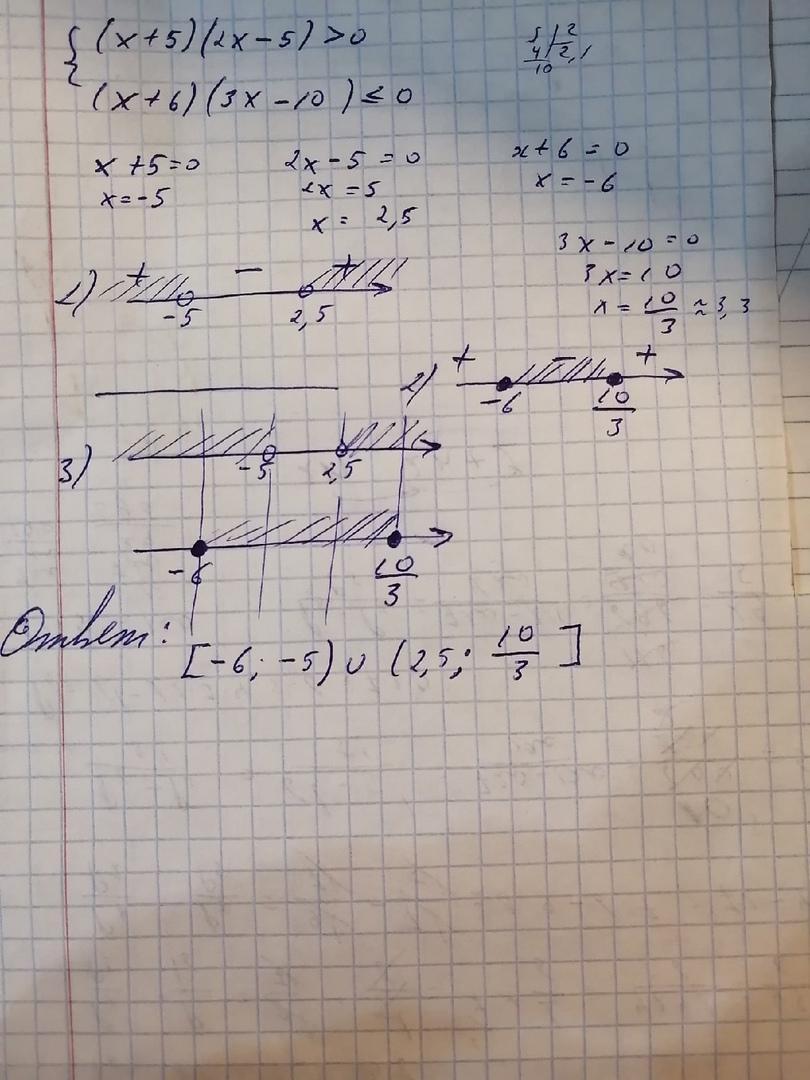 { (x+5)(2x-5)>0
(x+6)(3x-10)≤0
5 | 2
4 | 2,
10
x+5=0 2x-5=0 x+6=0
x=-5 2x=5 x=-6
x= 2,5
3x-10=0
3x=10
x= 10/3 ≈3,3
1) + - +
-5 2,5
2) + - +
-6 10/3
3) -5 2,5
-6 10/3
Ответ: [-6; -5)∪(2,5; 10/3]